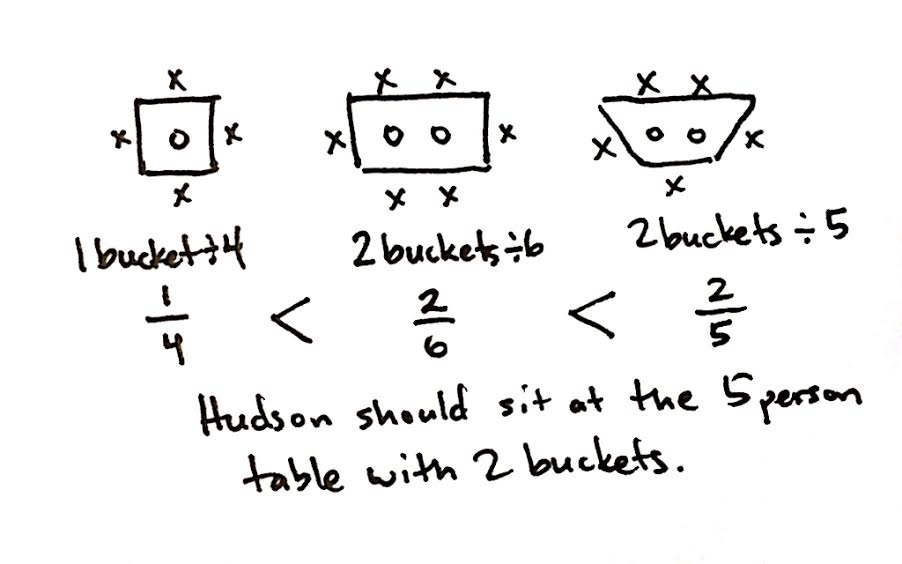 x x x x x
x o x x o o x x o o x
x x x x
1 bucket÷4 2 buckets÷6 2 buckets ÷ 5
1/4 < 2/6 < 2/5
Hudson should sit at the 5 person
table with 2 buckets.